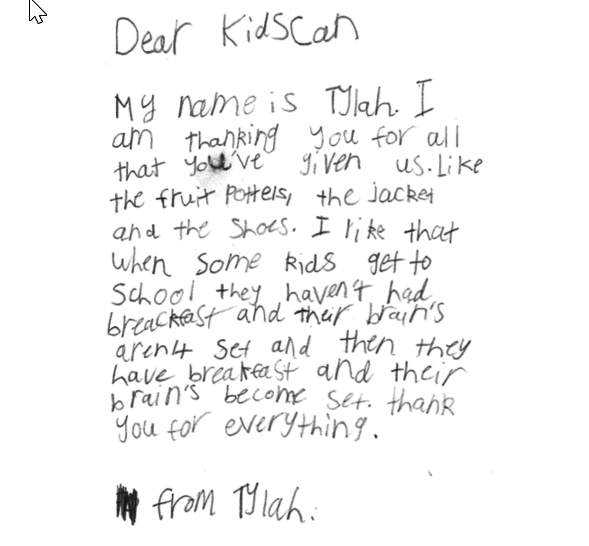 Dear KidsCan
My name is Tylah. I
am thanking you for all
that you've given us. Like
the fruit Potters, the jacket
and the Shoes. I like that
when some kids get to
School they haven't had
breackfast and their brain's
aren't set and then they
have breakfast and their
brain's become set. thank
you for everything.
from Tylah.